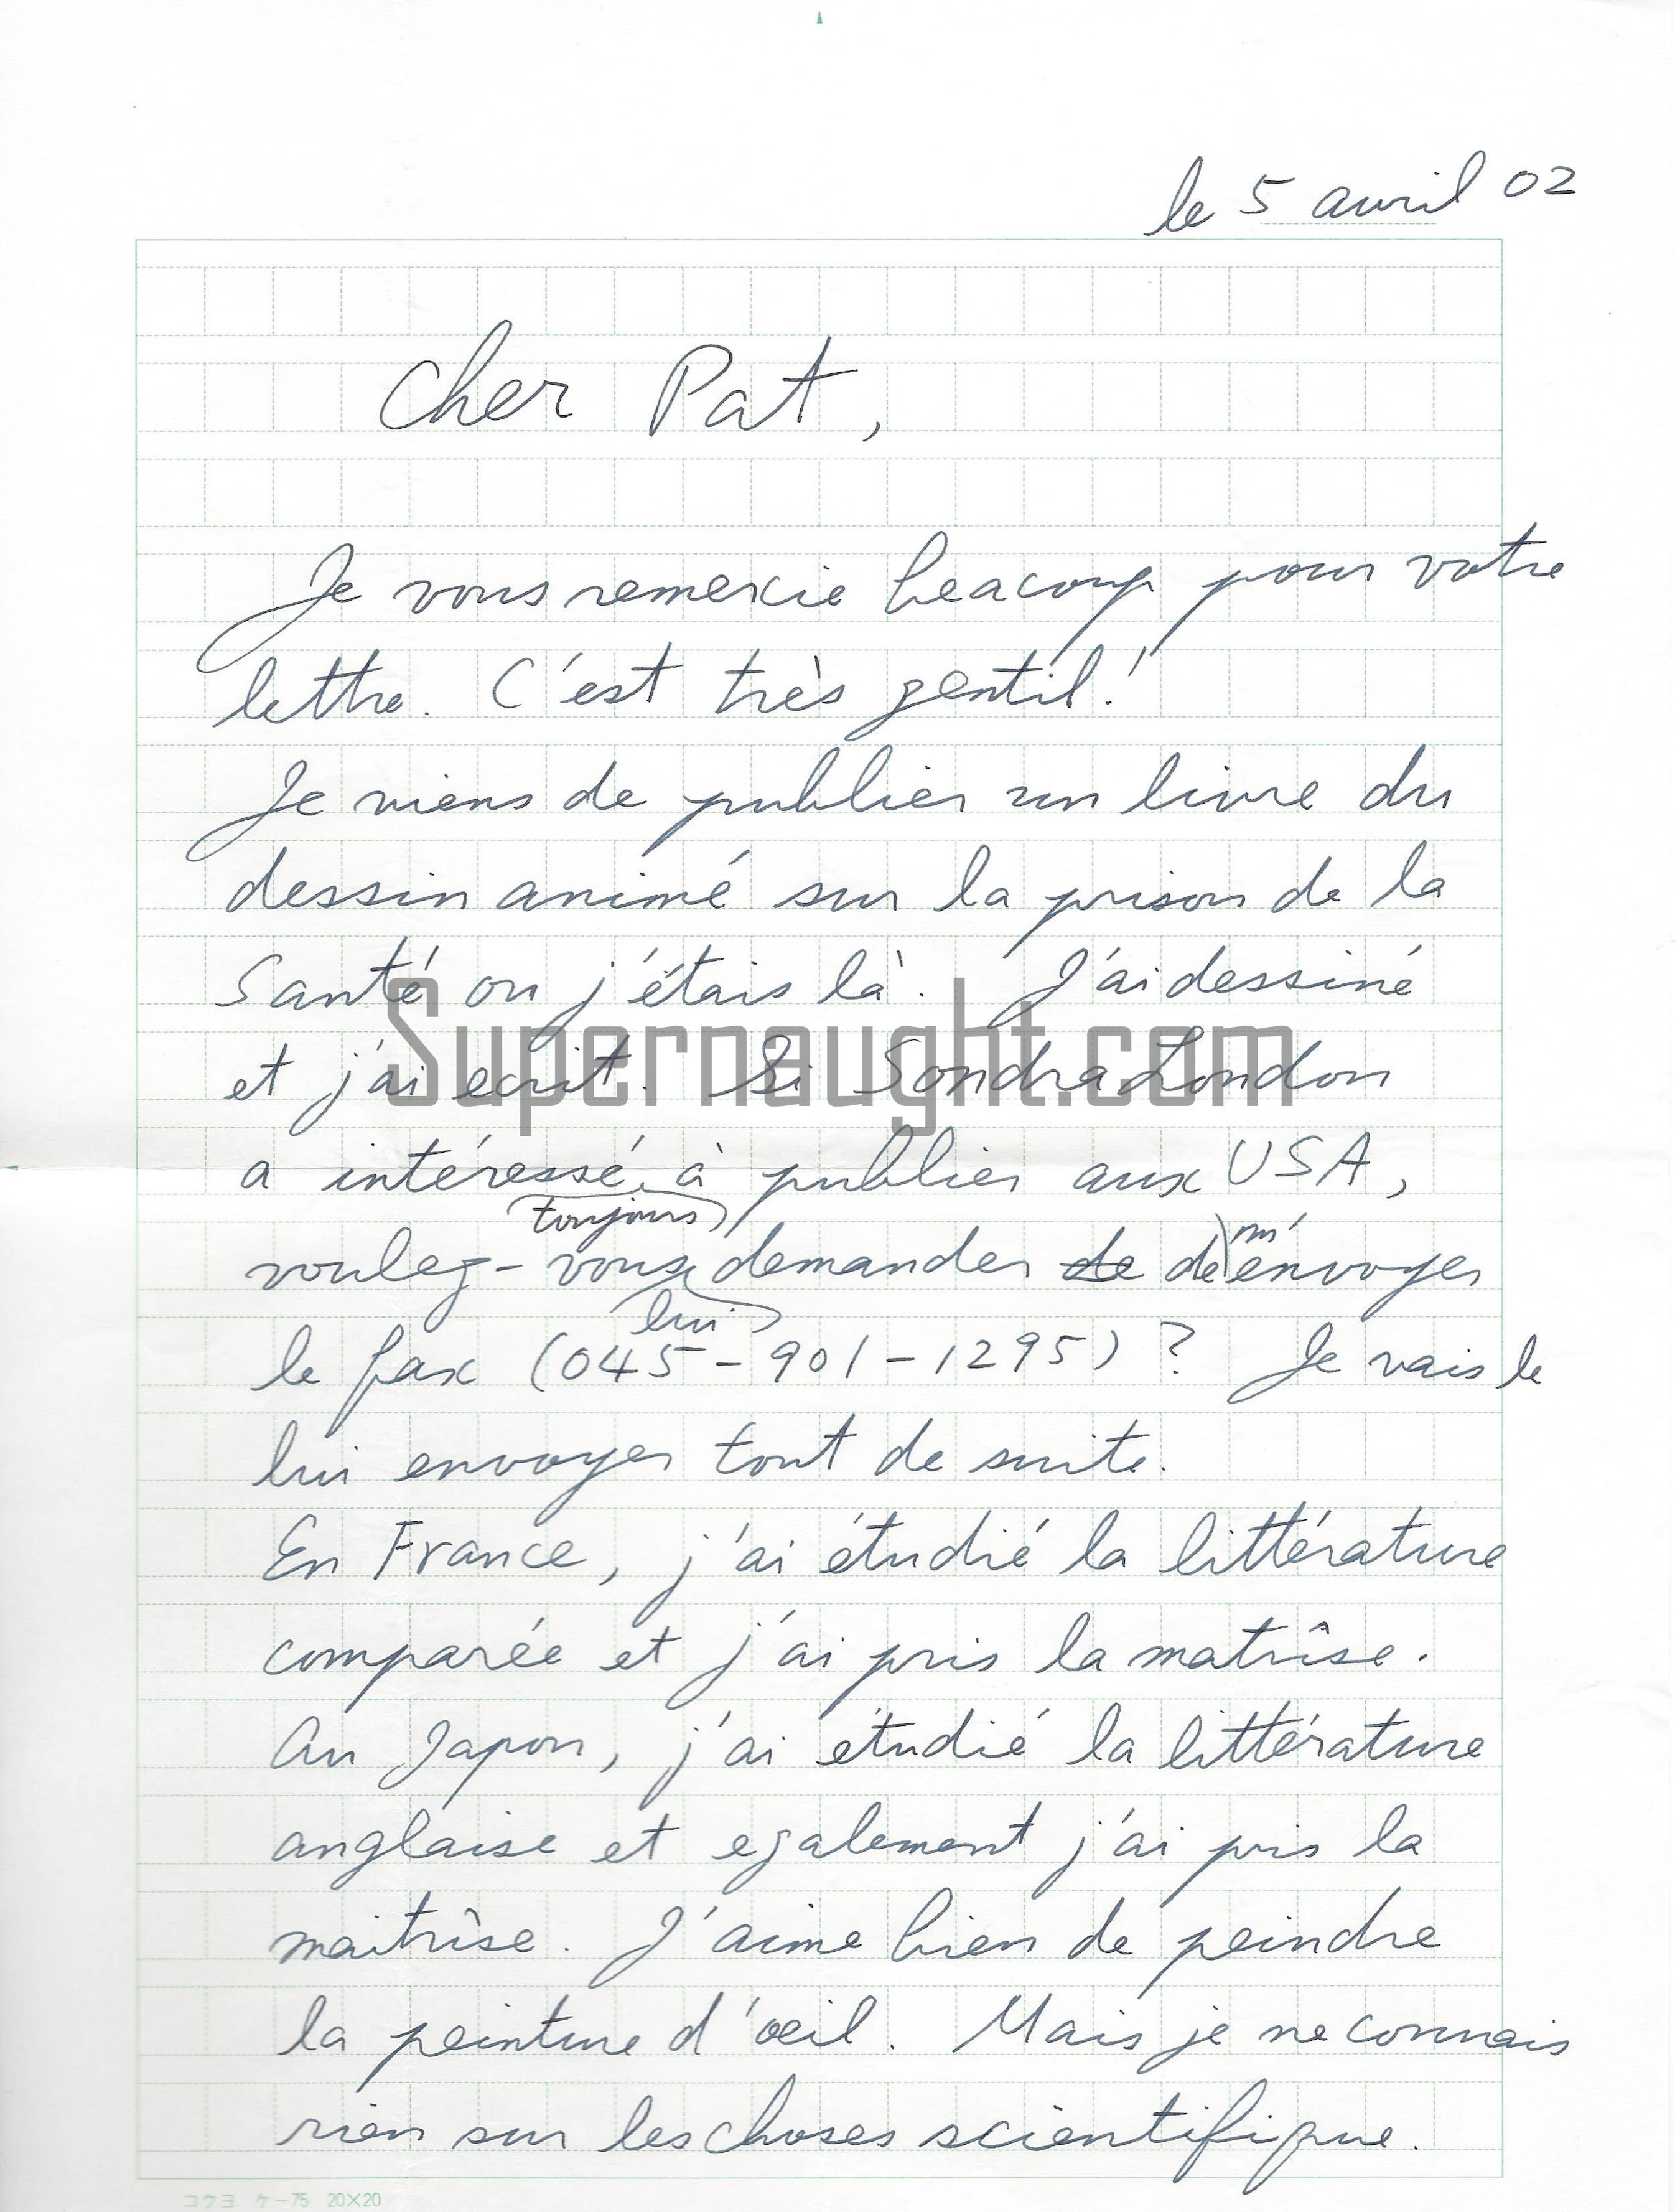 le 5 avril 02
Cher Pat,
Je vous remercie beacoup pour votre
lettre. C'est très gentil!
Je viens de publier un livre du
dessin animé sur la prison de la
Santé ou j'étais là. J'ai dessiné
et j'ai ecrit. Si Sondra London
Supernaught.com
a intéressé à publier aux USA,
toujours
voulez-vous demander de de m'envoyer
lui
le fax (045-901-1295)? Je vais le
lui envoyer tout de suite.
En France, j'ai étudié la littérature
comparée et j'ai pris la matrîse.
Au Japon, j'ai étudié la littérature
anglaise et egalement j'ai pris la
maitrîse. J'aime bien de peindre
la peinture d'oeil. Mais je ne connais
rien sur les choses scientifique.
コクヨ ケ-75 20×20